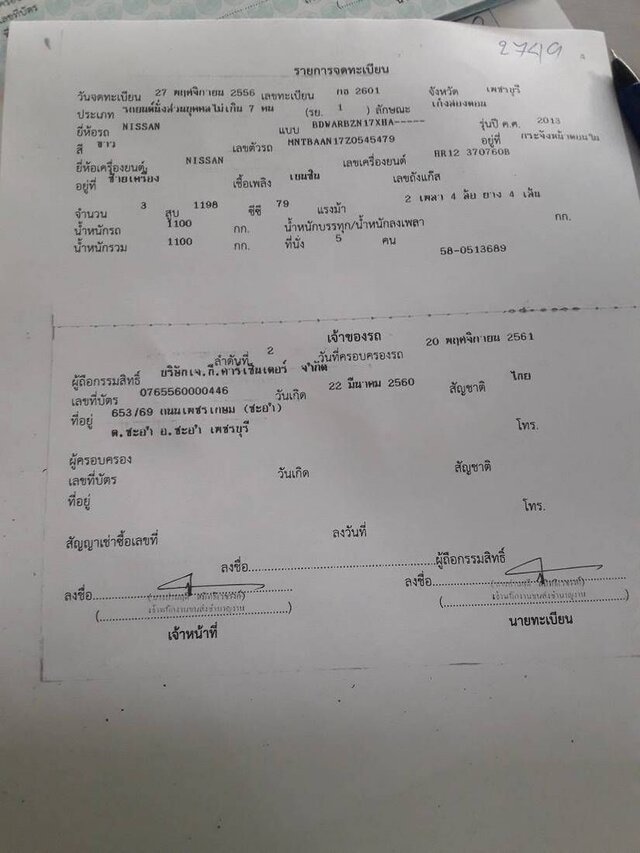 เลขที่บัตร
2749
รายการจดทะเบียน
วันจดทะเบียน 27 พฤศจิกายน 2556 เลขทะเบียน กล 2601 จังหวัด เพชรบุรี
ประเภท รถยนต์นั่งส่วนบุคคลไม่เกิน 7 คน (รย. 1 ) ลักษณะ เก๋งสองตอน
ยี่ห้อรถ NISSAN แบบ BDWARBZN17XHA----- รุ่นปี ค.ศ. 2013
สี ขาว เลขตัวรถ MNTBAAN17Z0545479 อยู่ที่ กระจังหน้าตอนใน
ยี่ห้อเครื่องยนต์ NISSAN เลขเครื่องยนต์ HR12 370760B
อยู่ที่ ซ้ายเครื่อง เชื้อเพลิง เบนซิน เลขถังแก๊ส
จำนวน 3 สูบ 1198 ซีซี 79 แรงม้า 2 เพลา 4 ล้อ ยาง 4 เส้น
น้ำหนักรถ 1100 กก. น้ำหนักบรรทุก/น้ำหนักลงเพลา กก.
น้ำหนักรวม 1100 กก. ที่นั่ง 5 คน
58-0513689
เจ้าของรถ
ลำดับที่ 2 วันที่ครอบครองรถ 20 พฤศจิกายน 2561
ผู้ถือกรรมสิทธิ์ บริษัทเจ.ที.คาร์เซ็นเตอร์ จำกัด
เลขที่บัตร 0765560000446 วันเกิด 22 มีนาคม 2560 สัญชาติ ไทย
ที่อยู่ 653/69 ถนนเพชรเกษม (ชะอำ)
ต.ชะอำ อ.ชะอำ เพชรบุรี โทร.
ผู้ครอบครอง
เลขที่บัตร วันเกิด สัญชาติ
ที่อยู่ โทร.
สัญญาเช่าซื้อเลขที่ ลงวันที่
ลงชื่อ........................................ผู้ถือกรรมสิทธิ์
ลงชื่อ........................................ ลงชื่อ........................................
เจ้าพนักงานขนส่งชำนาญงาน เจ้าพนักงานขนส่งชำนาญงาน
(........................................) (........................................)
เจ้าหน้าที่ นายทะเบียน